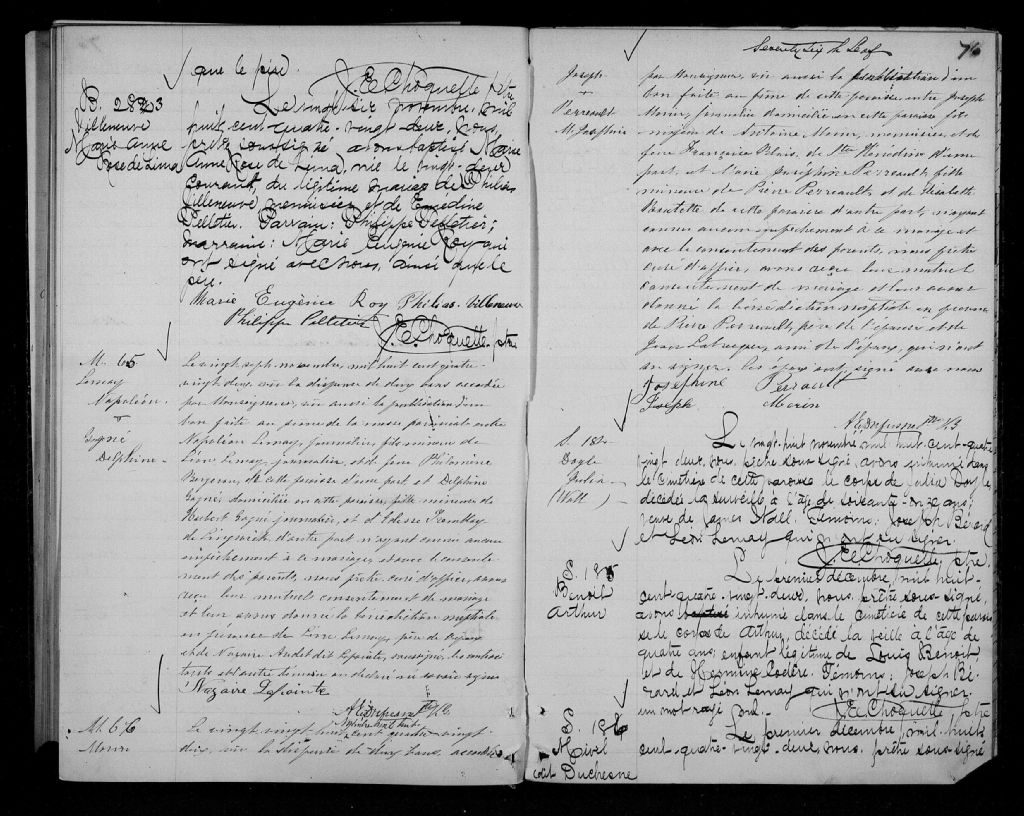 que le père.
J.E.Choquette ptre
B. 283
Villeneuve
Marie Anne
Rose de Lima
Le vingt-six novembre, mil
huit-cent-quatre-vingt-deux, nous,
prêtre soussigné avons baptisé Marie
Anne Rose de Lima, née le vingt-
courant, du légitime mariage de Philéas
Villeneuve menuisier et de
Pelletier. Parrain: Philippe Pelletier;
marraine: Marie Eugénie Roy qui
ont signé avec nous, ainsi que le
père.
Marie Eugénie Roy Philéas Villeneuve
Philippe Pelletier
J.E.Choquette ptre
M. 65
Lemay
Napoléon
+
Gagné
Delphine
Le vingt sept novembre, mil huit cent quatre
vingt deux, vu la dispense de deux bans accordée
par Monseigneur, vu aussi la publication d'un
ban faite au prône de la messe paroissiale entre
Napoléon Lemay, journalier, fils mineur de
Léon Lemay, journalier, et de feue Philomène
Bergeron, de cette paroisse d'une part et Delphine
Gagné, domiciliée en cette paroisse, fille mineure de
Hubert Gagné journalier, et d' Tremblay
de Lingwick d'autre part n'ayant connu aucun
empêchement à ce mariage, et avec le consente-
ment des parents, nous prêtre curé d'office, avons
reçu leur mutuel consentement de mariage
et leur avons donné la bénédiction nuptiale
en présence de Léon Lemay, père de l'époux
et de Nazaire Audet dit Lapointe, soussigné, les
et autre témoin ont déclaré ne savoir signer
Nazaire Lapointe
M. 66
Morin
Le vingt-
huit cent quatre vingt-
deux, vu la dispense de deux bans, accordée
Seventy six h Leaf
76
Joseph
+
Perreault
M. Josephine
par Monseigneur, vu aussi la publication d'un
ban faite au prône de cette paroisse entre Joseph
Morin, journalier domicilié en cette paroisse fils
majeur de Antoine Morin, menuisier et de
feue Françoise Blais, de Ste Hénédine d'une
part, et Marie Josephine Perreault, fille
mineure de Pierre Perreault et de Elisabeth
de cette paroisse d'autre part, n'ayant
connu aucun empêchement à ce mariage et
avec le consentement des parents, nous prêtre
curé d'office, avons reçu leur mutuel
consentement de mariage et leur avons
donné la bénédiction nuptiale en présence
de Pierre Perreault, père de l'épouse et de
Jean ami de l'époux, qui n'ont
su signer. Les époux ont signé avec nous
Josephine Perrault
Joseph Morin
S. 184
Doyle
Julia
(Wall)
Le vingt-huit novembre mil huit-cent-quatre-
vingt-deux, nous, prêtre sous-signé, avons inhumé dans
le cimetière de cette paroisse le corps de Julia Doyle
décédée la surveille à l'âge de soixante-onze ans;
veuve de James Wall. Témoins: Joseph Bérard
et Léon Lemay qui n'ont su signer.
J.E.Choquette, ptre.
S. 185
Benoit
Arthur
Le premier décembre, mil huit-
cent-quatre-vingt-deux, nous, prêtre sous-signé,
avons inhumé dans le cimetière de cette parois-
se le corps de Arthur, décédé la veille à l'âge de
quatre ans; enfant légitime de Louis Benoit
et de Hermine Codère. Témoins: Joseph Bé-
rard et Léon Lemay qui n'ont su signer.
un mot rayé nul.
J.E.Choquette ptre
S. 186
Duchesne
Le premier décembre, mil-huit-
cent-quatre-vingt-deux, nous, prêtre sous-signé